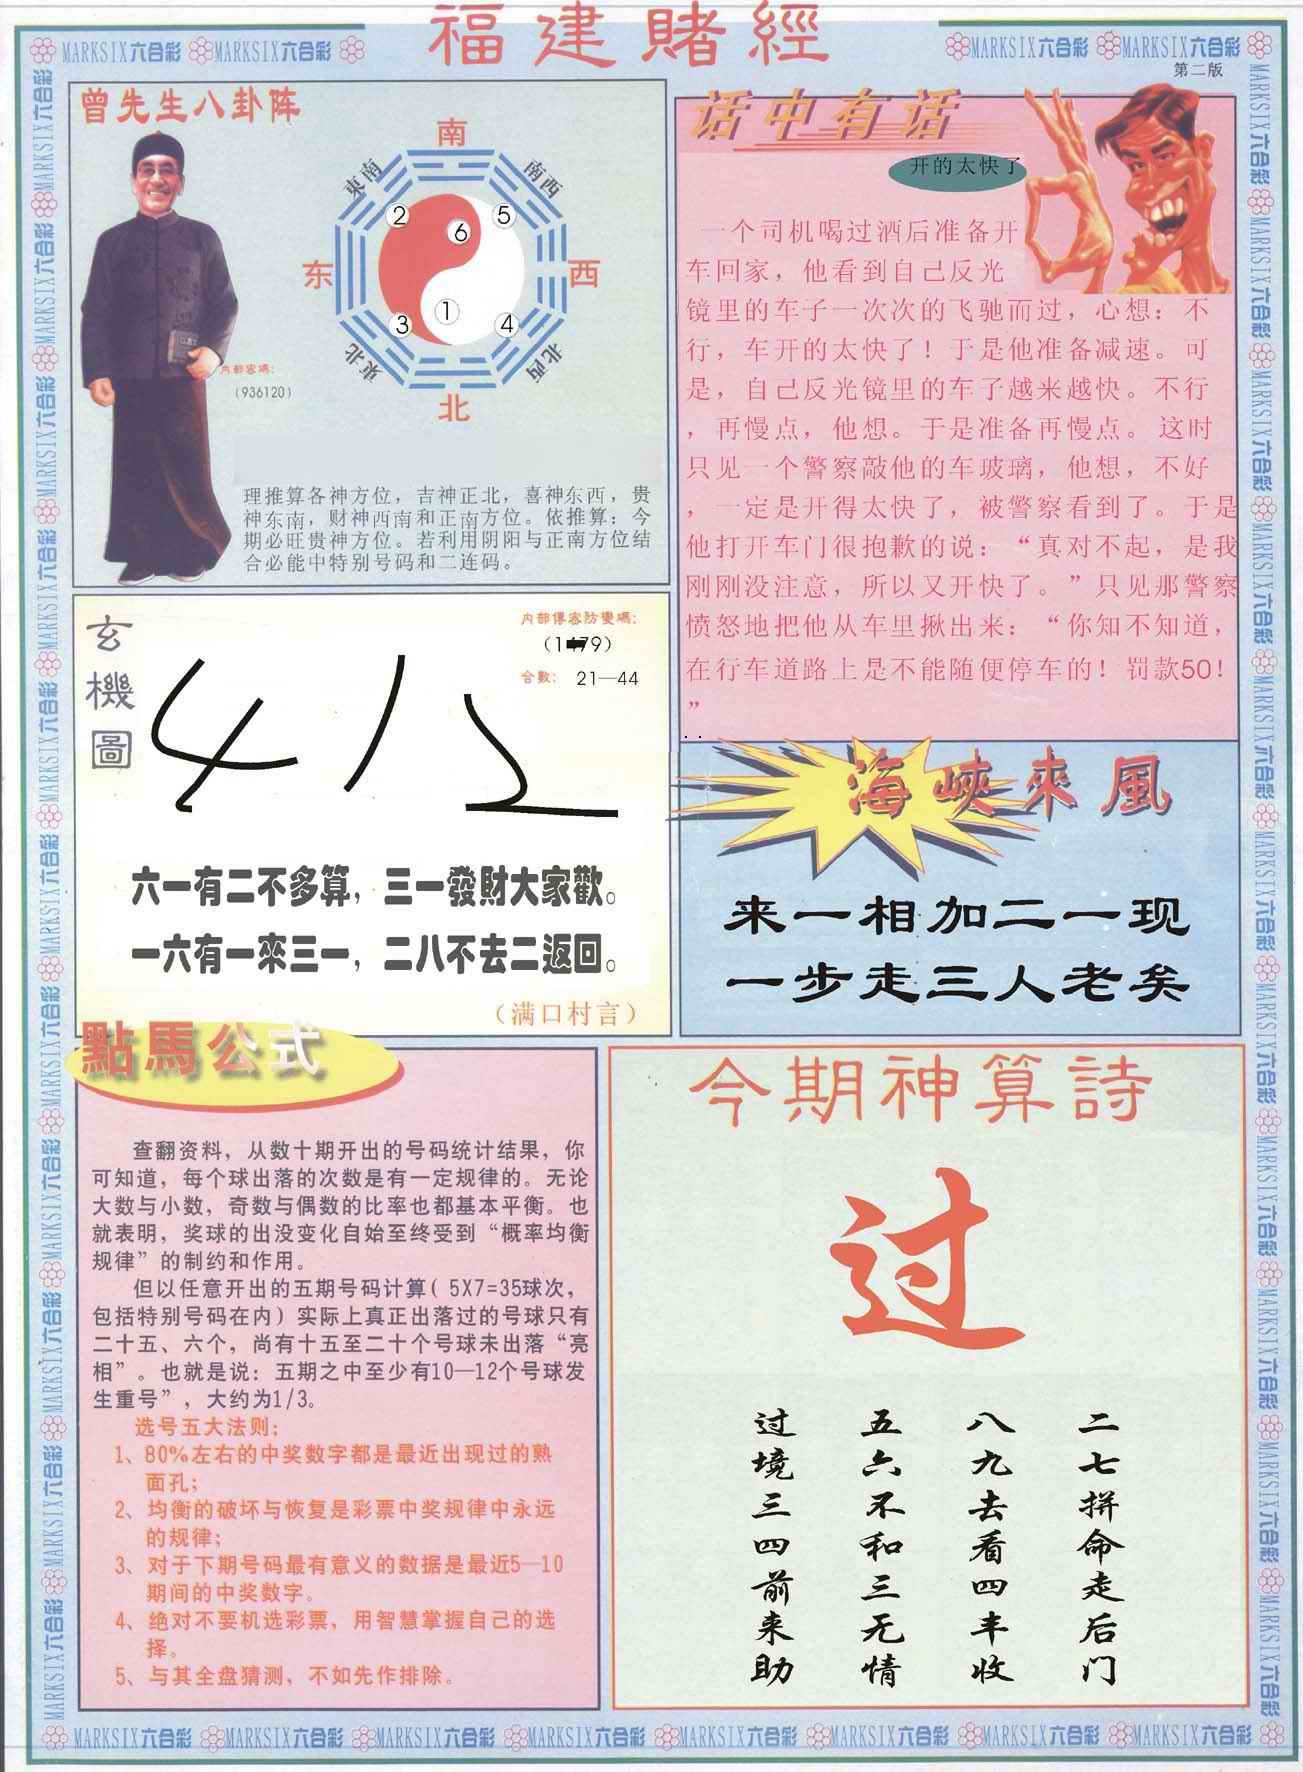 福建賭經
MARKSIX六合彩 MARKSIX六合彩
MARKSIX六合彩 MARKSIX六合彩
第二版
曾先生八卦阵
南
東南
南西
2
5
6
东
西
1
3
4
東北
北西
北
内部密碼：
（936120）
理推算各神方位，吉神正北，喜神东西，贵
神东南，财神西南和正南方位。依推算：今
期必旺贵神方位。若利用阴阳与正南方位结
合必能中特别号码和二连码。
话中有话
开的太快了
一个司机喝过酒后准备开
车回家，他看到自己反光
镜里的车子一次次的飞驰而过，心想：不
行，车开的太快了！于是他准备减速。可
是，自己反光镜里的车子越来越快。不行
，再慢点，他想。于是准备再慢点。这时
只见一个警察敲他的车玻璃，他想，不好
，一定是开得太快了，被警察看到了。于是
他打开车门很抱歉的说：“真对不起，是我
刚刚没注意，所以又开快了。”只见那警察
愤怒地把他从车里揪出来：“你知不知道，
在行车道路上是不能随便停车的！罚款50！
”
玄機圖
内部傳密防變碼：
合數： 21—44
412
六一有二不多算，三一發財大家歡。
一六有一來三一，二八不去二返回。
（满口村言）
海峽來風
来一相加二一现
一步走三人老矣
點馬公式
查翻资料，从数十期开出的号码统计结果，你
可知道，每个球出落的次数是有一定规律的。无论
大数与小数，奇数与偶数的比率也都基本平衡。也
就表明，奖球的出没变化自始至终受到“概率均衡
规律”的制约和作用。
但以任意开出的五期号码计算（5X7=35球次，
包括特别号码在内）实际上真正出落过的号球只有
二十五、六个，尚有十五至二十个号球未出落“亮
相”。也就是说：五期之中至少有10—12个号球发
生重号”，大约为1/3。
选号五大法则：
1、80%左右的中奖数字都是最近出现过的熟
面孔；
2、均衡的破坏与恢复是彩票中奖规律中永远
的规律；
3、对于下期号码最有意义的数据是最近5—10
期间的中奖数字。
4、绝对不要机选彩票，用智慧掌握自己的选
择。
5、与其全盘猜测，不如先作排除。
今期神算詩
过
二七拼命走后门
八九去看四丰收
五六不和三无情
过境三四前来助
MARKSIX六合彩 MARKSIX六合彩 MARKSIX六合彩 MARKSIX六合彩 MARKSIX六合彩 MARKSIX六合彩 MARKSIX六合彩 MARKSIX六合彩